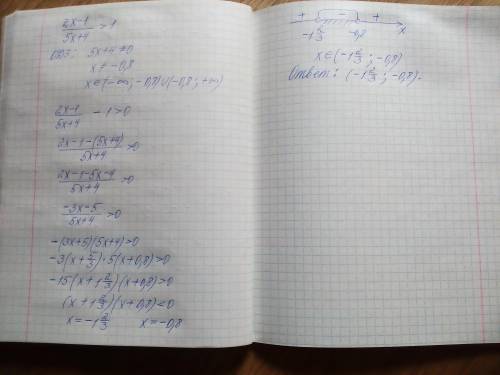 (2x-1)/(5x+4) > 1
ОДЗ: 5x+4≠0
x ≠ -0,8
x∈(-∞; -0,8)∪(-0,8; +∞)
(2x-1)/(5x+4) - 1>0
(2x-1-(5x+4))/(5x+4) >0
(2x-1-5x-4)/(5x+4) >0
(-3x-5)/(5x+4) >0
-(3x+5)(5x+4)>0
-3(x+5/3)·5(x+0,8)>0
-15(x+1 2/3)(x+0,8)>0
(x+1 2/3)(x+0,8)<0
x=-1 2/3 x=-0,8
+ - +
-1 2/3 -0,8 x
x∈(-1 2/3; -0,8)
Ответ: (-1 2/3; -0,8).